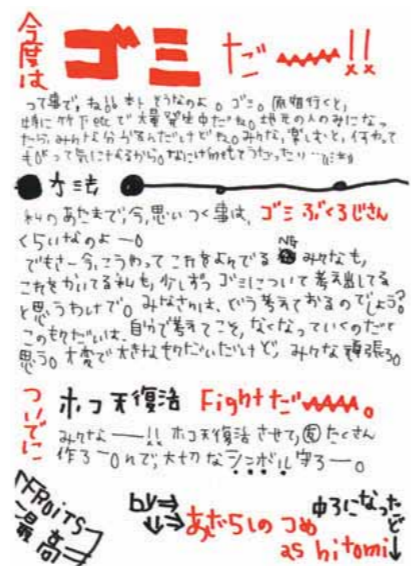 今度は
ゴミ
だ〜〜!!
って事で、ねぇ本トそうなのよ。ゴミ。原宿行くと、
特に竹下etcで大量発生中だね。地元の人のみになっ
たら、みんな分かるんだけどね。みんな、楽しむと、何やって
もOKって気になるから。
方法
私のあたまで、今、思いつく事は、ゴミぶくろじさん
くらいなのよー。
でもさー今、こうやってこれをよんでるみんなも、
NG
これをかいてる私も、少しずつゴミについて考え出してる
と思うわけで。みなさんは、どう考えておるのでしょう?
このもんだいは、自分で考えてこそ、なくなっていくのだと
思う。大変で大きなもんだいだけど、みんな頑張ろ。
ついでに
ホコ天復活 Fightだ〜〜。
みんなー!! ホコ天復活させて、たくさん
作ろー。んで、大切なシンボル守ろー。
FRUiTS
最高
by⇒
あたらしのつめ
as hitomi
中3になったど